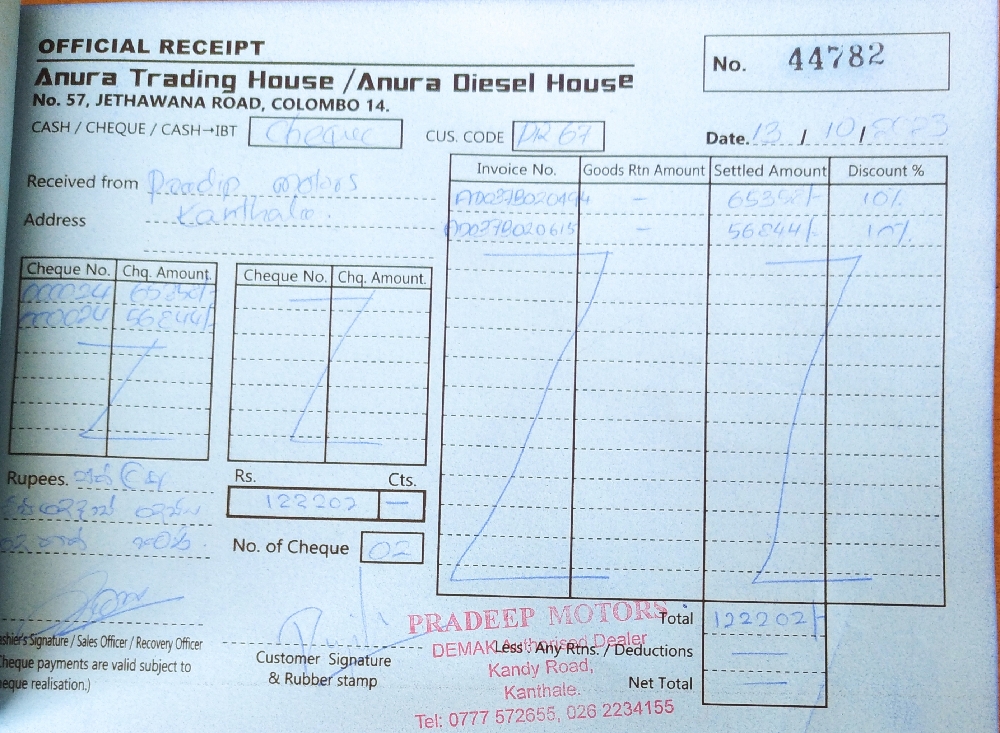 OFFICIAL RECEIPT
Anura Trading House /Anura Diesel House
No. 57, JETHAWANA ROAD, COLOMBO 14.
No. 44782
CASH / CHEQUE / CASH→IBT Cheque
CUS. CODE
Date. 13 / 10 / 2023
Received from Pradip motors
Address Kanthale.
Invoice No. Goods Rtn Amount Settled Amount Discount %
- 10%
- 56844/- 10%
Cheque No. Chq. Amount.
000024
000024 56844/-
Cheque No. Chq. Amount.
Rupees.
Rs. Cts.
122202 -
No. of Cheque 02
Total 122202/-
Less : Any Rtns. / Deductions
Net Total
ashier's Signature / Sales Officer / Recovery Officer
heque payments are valid subject to
eque realisation.)
Customer Signature
& Rubber stamp
PRADEEP MOTORS
DEMAK Authorised Dealer
Kandy Road,
Kanthale.
Tel: 0777 572655, 026 2234155